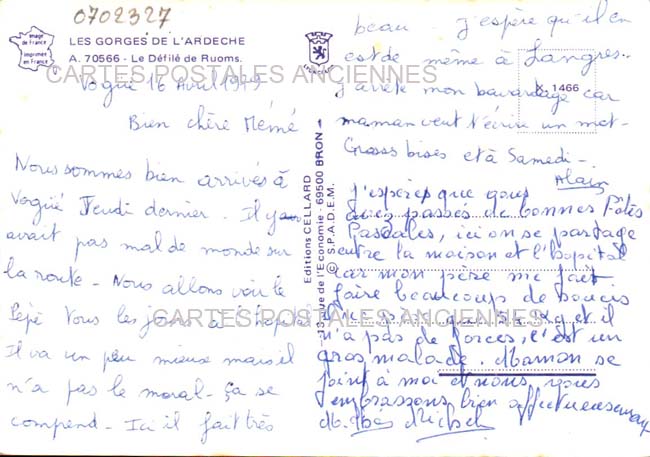 0702327
Image
de France
imprimée
en France
LES GORGES DE L'ARDECHE
A. 70566 - Le Défilé de Ruoms.
CARTES POSTALES ANCIENNES
Vogüé 16 Avril 1979
Bien chère Mémé
Nous sommes bien arrivés à
Vogüé Jeudi dernier. Il y
avait pas mal de monde sur
la route - Nous allons voir le
Pépé tous les jours à l'hopital
CARTES POSTALES ANCIENNES
Il va un peu mieux mais il
n'a pas le moral - ça se
comprend - Ici il fait très
Editions CELLARD
rue de l'Economie - 69500 BRON
S.P.A.D.E.M.
X. 1466
beau - J'espère qu'il en
est de même à Langres..
J'arrête mon bavardage car
maman veut t'écrire un mot -
Grosses bises et à Samedi -
Alain
J'espère que vous
avez passés de bonnes Fêtes
Pascales, ici on se partage
entre la maison et l'hopital
car mon père me fait
faire beaucoup de soucis
et il
n'a pas de forces, c'est un
gros malade. Maman se
joint à moi et nous vous
embrassons bien affectueusement